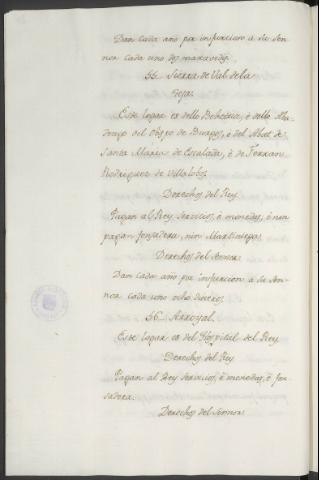 Dan cada año por infurcion a su Sen-
nor cada uno dos maravedis.
55. Sierra de Val de la
Geja.
Este logar es dello Behetria, è dello Aba-
dengo del Obispo de Burgos, è del Abat de
Santa Maria de Escalada, è de Ferran
Rodriguez de Villalobos.
Derechos del Rey.
Pagan al Rey servicios, è monedas, è non
pagan fonsadera, nin Martiniega.
Derechos del Sennor.
Dan cada año por infurcion a su Sen-
nor cada uno ocho dineros.
56. Arroyal.
Este logar es del Hospital del Rey.
Derechos del Rey
Pagan al Rey servicios, è monedas, è fon-
sadera.
Derechos del Sennor.